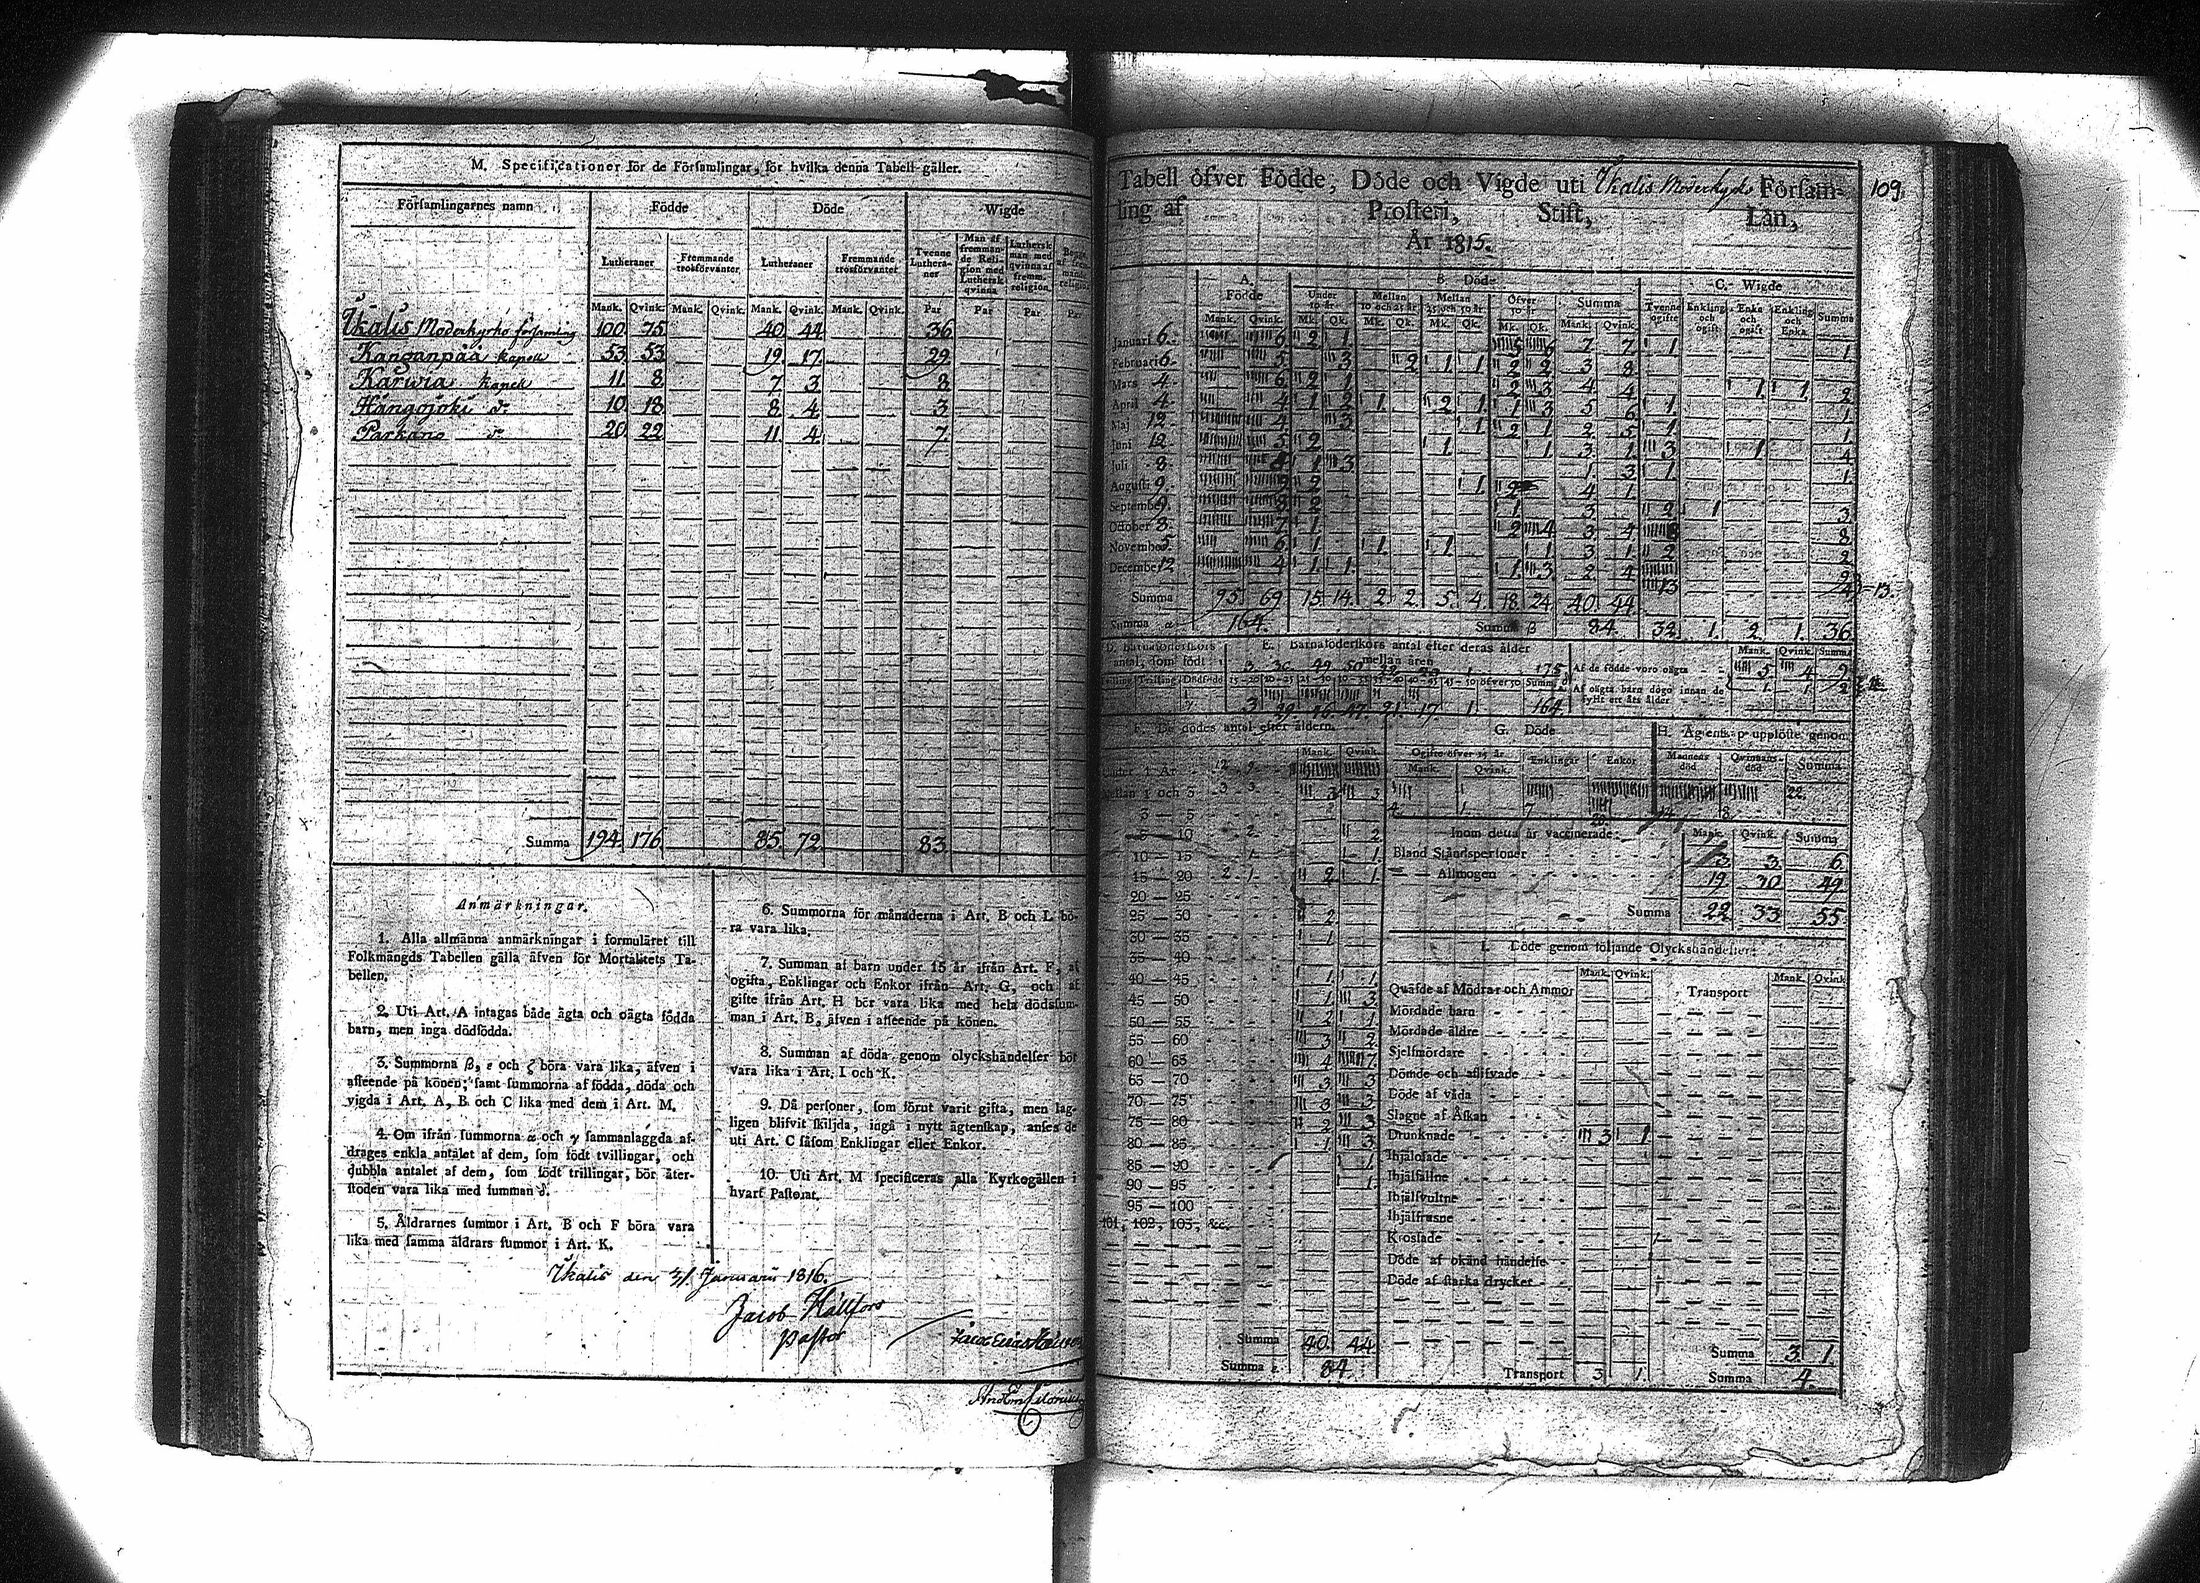 M. Specificationer för de Församlingar, för hvilka denna Tabell gäller.
Församlingarnes namn Födde Döde Wigde
Lutheraner Fremmande trosförvanter Lutheraner Fremmande trosförvanter Tvenne Lutheraner Man af fremmande Religion med Luthersk qvinna Luthersk man med qvinna af fremm. religion
Mank. Qvink. Mank. Qvink. Mank. Qvink. Mank. Qvink. Par Par Par Par
Ikalis Moderkyrko församling 100 75 40 44 36
Kanganpää kapell 53 53 19 17 29
Karwia kapell 11 8 7 3 8
Hångojoki d:o 10 18 8 4 3
Parkano d:o 20 22 11 4 7
Summa 194 176 85 72 83
Anmärkningar.
1. Alla allmänna anmärkningar i formuläret till
Folkmängds Tabellen gälla äfven för Mortalitets Ta-
bellen.
2. Uti Art. A intagas både ägta och oägta födda
barn, men inga dödfödda.
3. Summorna β, ε och ζ böra vara lika, äfven i
afseende på könen; samt summorna af födda, döda och
vigda i Art. A, B och C lika med dem i Art. M.
4. Om ifrån summorna α och γ sammanlaggda af-
drages enkla antalet af dem, som födt tvillingar, och
dubbla antalet af dem, som födt trillingar, bör åter-
stoden vara lika med summan δ.
5. Åldrarnes summor i Art. B och F böra vara
lika med samma åldrars summor i Art. K.
6. Summorna för månaderna i Art. B och L bö-
ra vara lika.
7. Summan af barn under 15 år ifrån Art. F, af
ogifta, Enklingar och Enkor ifrån Art. G, och af
gifte ifrån Art. H bör vara lika med hela dödssum-
man i Art. B, äfven i afseende på könen.
8. Summan af döda genom olyckshändelser bör
vara lika i Art. I och K.
9. Då personer, som förut varit gifta, men lag-
ligen blifvit skiljda, ingå i nytt ägtenskap, anses de
uti Art. C såsom Enklingar eller Enkor.
10. Uti Art. M specificeras alla Kyrkogällen i
hvart Pastorat.
Ikalis den 31 Januarii 1816.
Jacob Hällfors
Pastor
109.
Tabell öfver Födde, Döde och Vigde uti Ikalis Moderkyrko Församling
af Prosteri, Stift, Län,
År 1815.
A. Födde B. Döde C. Wigde
Under 10 år. Mellan 10 och 25 år. Mellan 25 och 50 år. Öfver 50 år. Summa Tvenne ogifte Enkling och ogift Enka och ogift Enkling och Enka Summa
Mank. Qvink. Mk. Qk. Mk. Qk. Mk. Qk. Mk. Qk. Mank. Qvink.
Januari 6 6 2 1 5 6 7 7 1 1
Februari 6 5 3 2 1 1 2 2 3 8 1 1 2
Mars 4 6 2 1 2 3 4 4 1 1
April 4 4 1 2 1 2 1 1 3 5 6 1 1
Maj 12 4 3 1 2 1 2 5 1 1
Juni 12 5 2 1 1 3 1 3 1 4
Juli 8 8 1 3 1 3 1 1
Augusti 9 9 2 1 2 4 1
September 9 8 2 1 3 2 1 3
October 8 7 1 2 4 3 4 8 8
November 5 6 1 1 1 1 3 1 2 2
December 12 4 1 1 1 3 2 4 13 =13.
Summa 95 69 15 14 2 2 5 4 18 24 40 44
Summa α 164 Summa β 84 32 1 2 1 36
E. Barnaföderskors antal efter deras ålder
mellan åren
15—20 20—25 25—30 30—35 35—40 40—45 45—50 öfver 50 Summa δ
3 47 21 17 1 164
Mank. Qvink. Summa
Af de födde voro oägta 5 4 9
Af oägta barn dögo innan de
fyllt ett års ålder 1 1 2
F. De dödes antal efter åldern.
Mank. Qvink.
Under 1 År
Mellan 1 och 3 3 3
3 — 5
5 — 10 2
10 — 15 1
15 — 20 2 1
20 — 25
25 — 30 2
30 — 35 1
35 — 40
40 — 45 1 1
45 — 50 1 3
50 — 55 2 1
55 — 60 3 2
60 — 65 4 7
65 — 70 3 3
70 — 75 3 3
75 — 80 2 3
80 — 85 1 3
85 — 90 1
90 — 95 1
95 — 100
101, 102, 103, &c.
Summa 40 44
Summa ε 84
G. Döde
Ogifte öfver 15 år Enklingar Enkor
Mank. Qvink.
4 1 7 20
H. Ägtenskap upplöste genom
Mannens död Qwinnans död Summa
14 8 22
Inom detta år vaccinerade: Mank. Qvink. Summa
Bland Ståndspersoner 3 3 6
— — Allmogen 19 30 49
Summa 22 33 55
I. Döde genom följande Olyckshändelser:
Mank. Qvink. Mank. Qvink.
Quäfde af Mödrar och Ammor Transport
Mördade barn
Mördade äldre
Sjelfmördare
Dömde och aflifvade
Döde af våda
Slagne af Åskan
Drunknade 3 1
Ihjälosade
Ihjälfallne
Ihjälsvultne
Ihjälfrusne
Krossade
Döde af okänd händelse
Döde af starka drycker
Summa 3 1
Transport 3 1 Summa 4